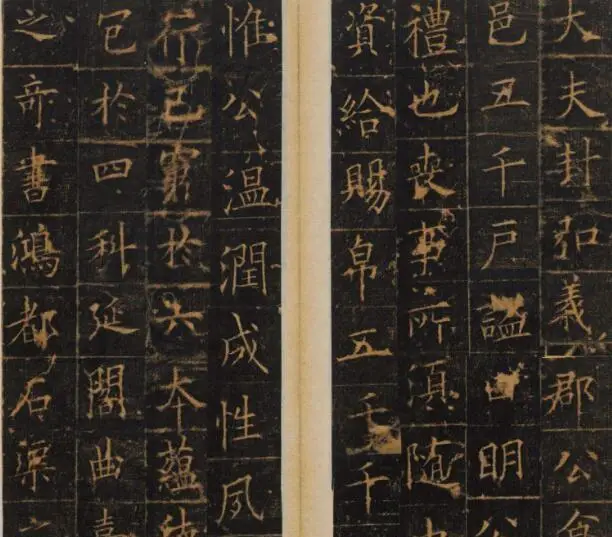 大夫封弘義郡公食
邑五千户謚曰明公
禮也喪事所須隨
資給賜帛五千千
惟公温潤成性夙
行己窮於六本蘊德
包於四科延閣曲
之奇書鴻都石渠之